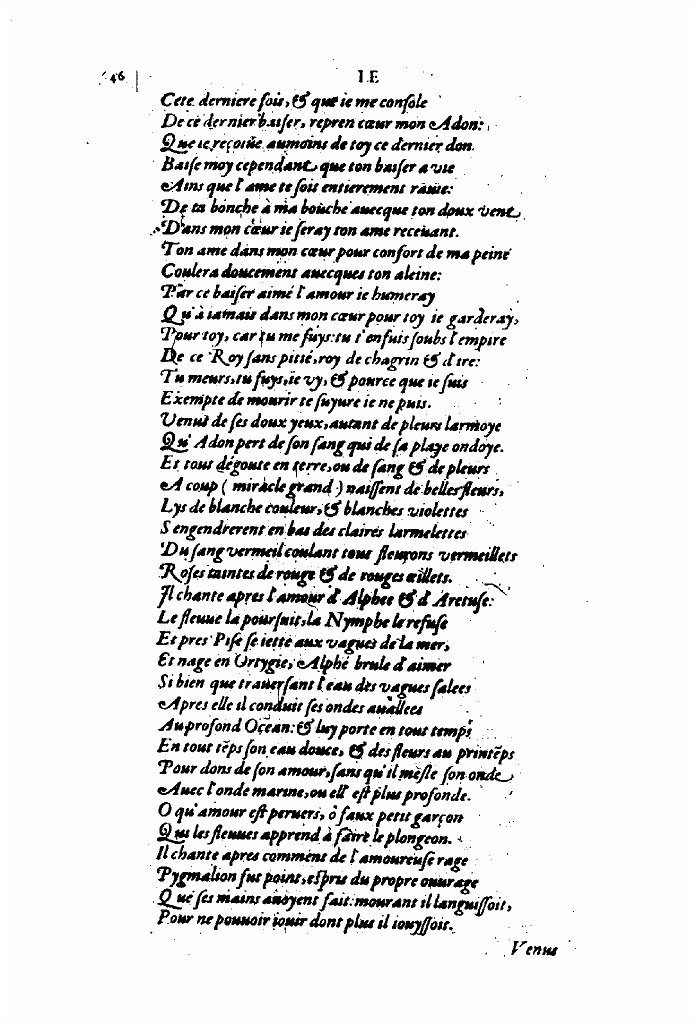 46
LE
Cete derniere fois, & que ie me console
De ce dernier baiser, repren cœur mon Adon:
Que ie reçoiue aumoins de toy ce dernier don.
Baise moy cependant que ton baiser a vie
Ains que l'ame te soit entierement rauie:
De ta bouche à ma bouche auecque ton doux vent
Dans mon cœur ie seray ton ame receuant.
Ton ame dans mon cœur pour confort de ma peine
Coulera doucement auecques ton aleine:
Par ce baiser aimé l'amour ie humeray
Qu'à iamais dans mon cœur pour toy ie garderay,
Pour toy, car tu me fuys: tu t'enfuis soubs l'empire
De ce Roy sans pitié, roy de chagrin & d'ire:
Tu meurs, tu fuys, ie vy, & pource que ie suis
Exempte de mourir te suyure ie ne puis.
Venus de ses doux yeux, autant de pleurs larmoye
Qu'Adon pert de son sang qui de sa playe ondoye.
Et tout dégoute en terre, ou de sang & de pleurs
A coup ( miracle grand ) naissent de belles fleurs,
Lys de blanche couleur, & blanches violettes
S'engendrerent en bas des claires larmelettes
Du sang vermeil coulant tous fleurons vermeillets
Roses taintes de rouge & de rouges œillets.
Il chante apres l'amour d'Alphee & d'Aretuse:
Le fleuue la poursuit, la Nymphe le refuse
Et pres Pise se iette aux vagues de la mer,
Et nage en Ortygie, Alphé brule d'aimer
Si bien que trauersant l'eau des vagues salees
Apres elle il conduit ses ondes auallees
Au profond Ocean: & luy porte en tous temps
En tout tẽps son eau douce, & des fleurs au printẽps
Pour dons de son amour, sans qu'il mesle son onde
Auec l'onde marine, ou ell' est plus profonde.
O qu'amour est peruers, ô faux petit garçon
Qui les fleuues apprend à faire le plongeon.
Il chante apres comment de l'amoureuse rage
Pygmalion fut point, espris du propre ouurage
Que ses mains auoyent fait: mourant il languissoit,
Pour ne pouuoir iouir dont plus il iouyssoit.
Venus